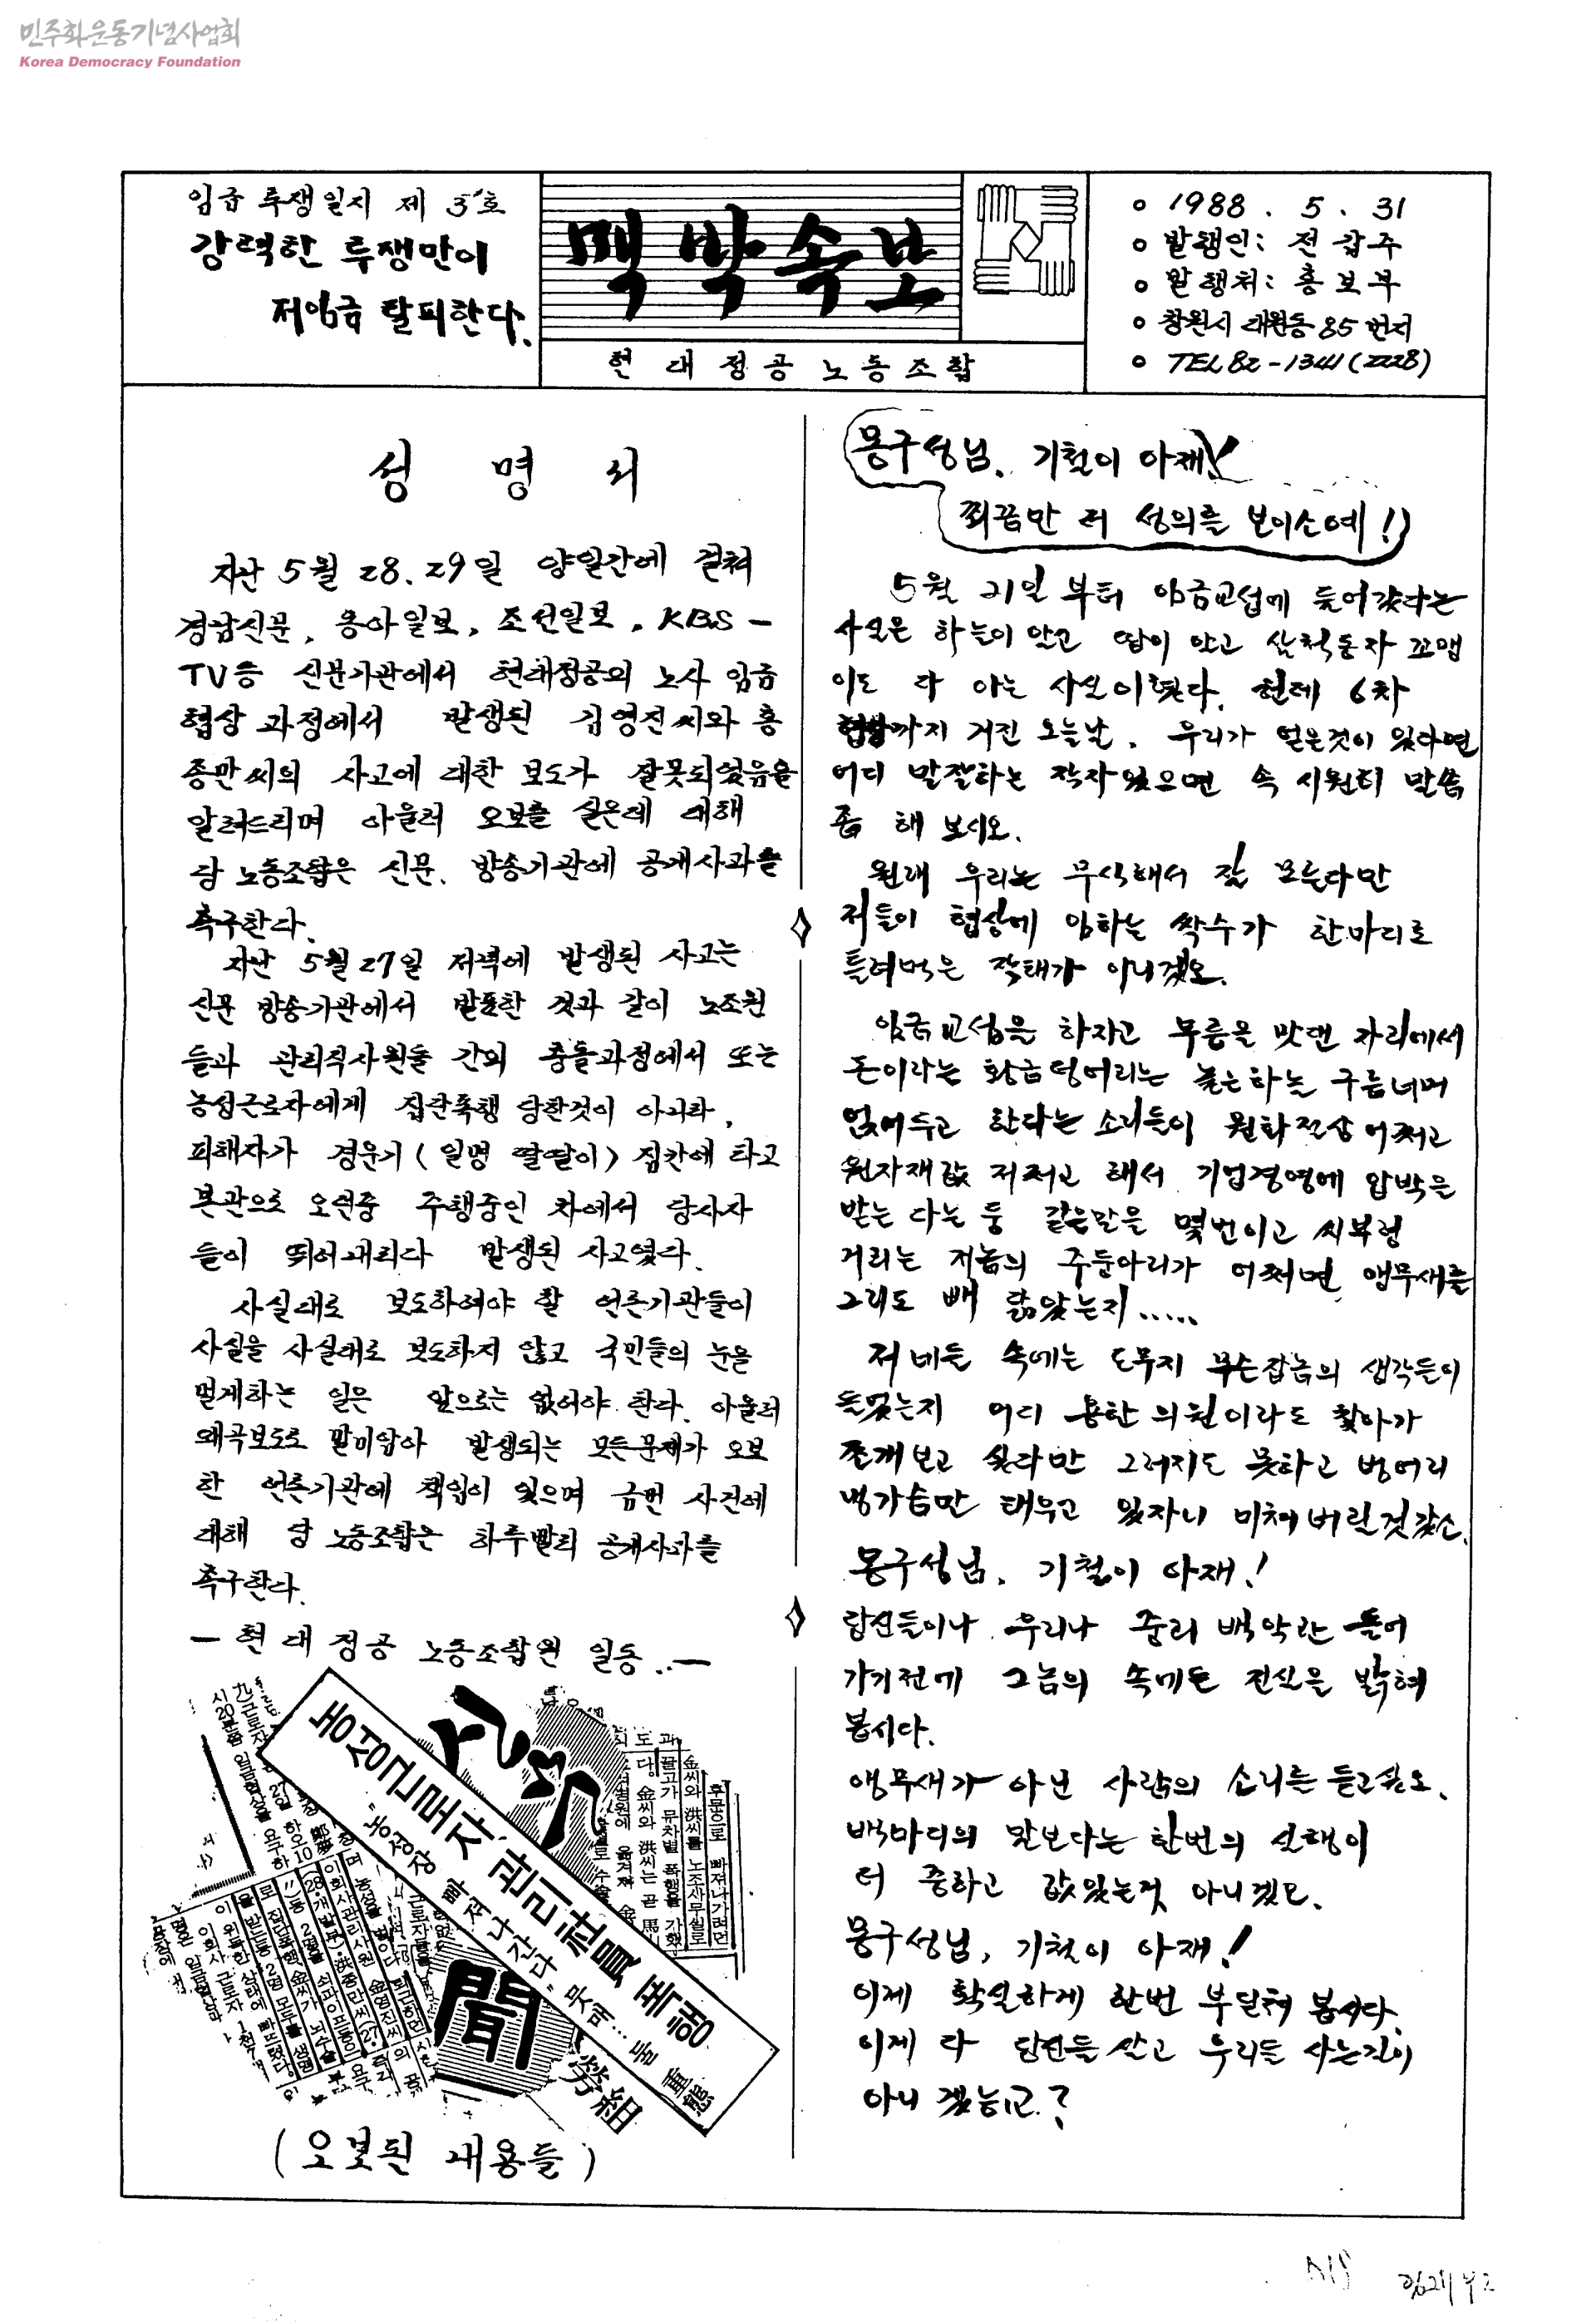 민주화운동기념사업회
Korea Democracy Foundation
임금투쟁일시 제 3호
강력한 투쟁만이
저임금 탈피한다.
맥박속보
현대정공노동조합
○ 1988. 5. 31
○ 발행인: 전갑주
○ 발행처: 홍보부
○ 창원시 대원동 85번지
○ TEL 82-1341(2228)
성 명 서
지난 5월 28.29일 양일간에 걸쳐
경남신문, 동아일보, 조선일보, KBS-
TV등 신문기관에서 현대정공의 노사 임금
협상 과정에서 발생된 김영진씨와 홍
종만씨의 사고에 대한 보도가 잘못되었음을
알려드리며 아울러 오보를 실은데 대해
당 노동조합은 신문. 방송기관에 공개사과를
촉구한다.
지난 5월 27일 저녁에 발생된 사고는
신문 방송기관에서 발표한 것과 같이 노조원
들과 관리직사원들 간의 충돌과정에서 또는
농성근로자에게 집단폭행 당한것이 아니라,
피해자가 경운기(일명 딸딸이) 짐칸에 타고
본관으로 오던중 주행중인 차에서 당사자
들이 뛰어내리다 발생된 사고였다.
사실대로 보도하여야 할 언론기관들이
사실을 사실대로 보도하지 않고 국민들의 눈을
멀게하는 일은 앞으로는 없어야 한다. 아울러
왜곡보도로 말미암아 발생되는 모든문제가 오보
한 언론기관에 책임이 있으며 금번 사건에
대해 당 노동조합은 하루빨리 공개사과를
촉구한다.
- 현대정공 노동조합원 일동..-
농성근로자, 관리社員 폭행
"농성장 빠져나간다" 뭇매… 둘 重態
聞
勞組
후문으로 빠져나가려던
金씨와 洪씨를 노조사무실로
끌고가 무차별 폭행을 가했
다. 金씨와 洪씨는 곧 馬
(오보된 내용들)
몽구성님, 기철이 아재!
쬐끔만 더 성의를 보이소예!)
5월 21일 부터 임금교섭에 들어갔다는
사실은 하늘이 알고 땅이 알고 삼척동자 꼬맹
이도 다 아는 사실이렸다. 헌데 6차
협상까지 거친 오늘날, 우리가 얻은것이 있다면
어디 말잘하는 작자있으면 속 시원히 말씀
좀 해 보시오.
원래 우리는 무식해서 잘 모른다만
저들이 협상에 임하는 싹수가 한마디로
틀려먹은 작태가 아니겠오.
임금교섭을 하자고 무릎을 맞댄 자리에서
돈이라는 황금덩어리는 높은하늘 구름너머
얹어두고 한다는 소리들이 원화절상 어쩌고
원자재값 저쩌고 해서 기업경영에 압박을
받는 다는 둥 같은말을 몇번이고 씨부렁
거리는 저놈의 주둥아리가 어쩌면 앵무새를
그리도 빼 닮았는지.....
저 네들 속에는 도무지 무슨잡놈의 생각들이
들었는지 어디 용한 의원이라도 찾아가
쪼개보고 싶다만 그러지도 못하고 벙어리
냉가슴만 태우고 있자니 미쳐버릴것같소.
몽구성님, 기철이 아재!
당신들이나 우리나 중리 백악관 들어
가기전에 그놈의 속에든 진실을 밝혀
봅시다.
앵무새가 아닌 사람의 소리를 듣고싶소.
백마디의 말보다는 한번의 실행이
더 중하고 값있는것 아니겠오.
몽구성님, 기철이 아재!
이제 확실하게 한번 부딪쳐 봅시다.
이게 다 당신들 살고 우리들 사는길이
아니 겠능교?